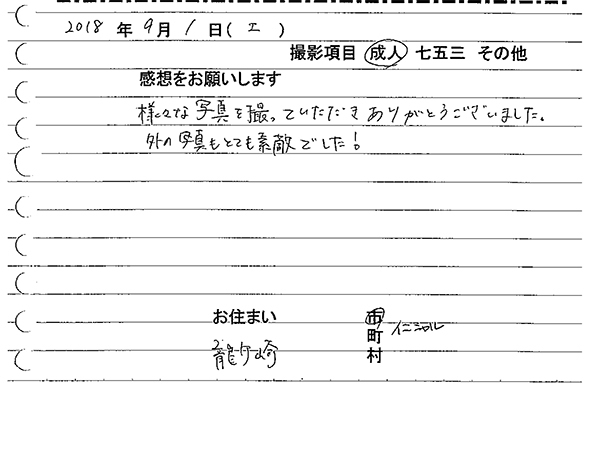 2018 年 9 月 1 日( 土 )
撮影項目 成人 七五三 その他
感想をお願いします
様々な写真を撮っていただきありがとうございました。
外の写真もとても素敵でした!
お住まい 市 イニシャル
町
龍ケ崎 村